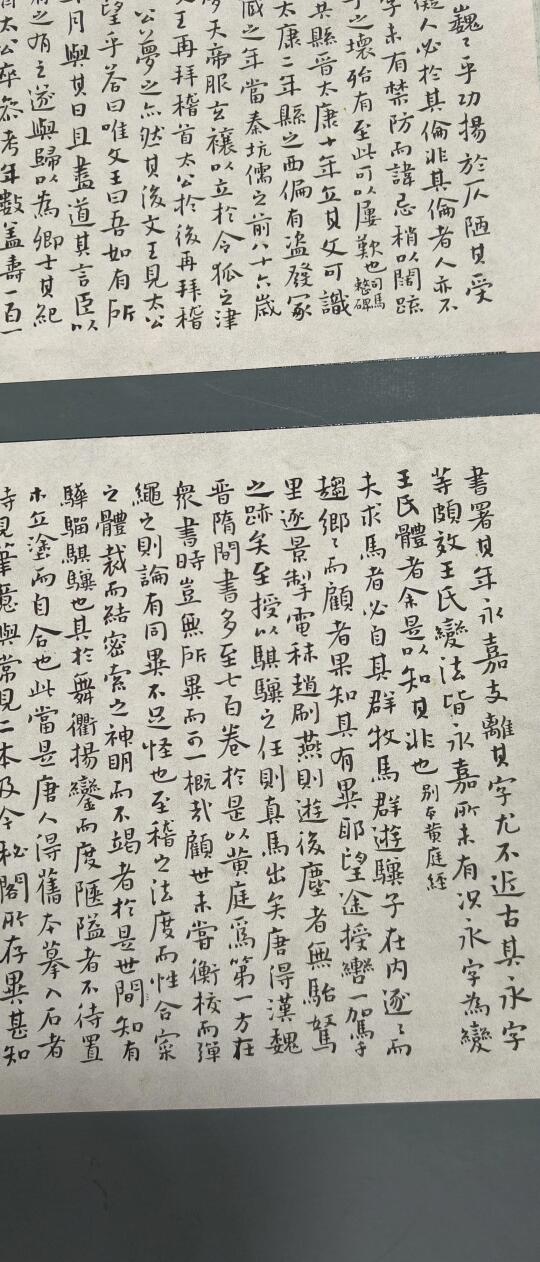 巍〻乎功揚於仄陋其受
儗人必於其倫非其倫者人亦不
字未有禁防而諱忌稍以闊疏
之壞殆有至此可以屢歎也司馬整碑
其縣晉太康十年立其文可識
太康二年縣之西偏有盜發冢
藏之年當秦坑儒之前八十六歲
夢天帝服玄禳以立於令狐之津
文王再拜稽首太公於後再拜稽
公夢之亦然其後文王見太公
望乎荅曰唯文王曰吾如有所
年月與其日且盡道其言臣以
之有之遂與歸以為卿士其紀
太公卒參考年數蓋壽一百一
書署其年永嘉支離其字尤不近古其永字
等頗效王氏變法皆永嘉所未有況永字為變
王氏體者余是以知其非也別本黃庭經
夫求馬者必自其群牧馬群遊驥子在內逐〻而
趨鄉〻而顧者果知其有異耶望途授轡一駕千
里逐景掣電秣趙刷燕則遊後塵者無駘駑
之跡矣至授以騏驥之任則真馬出矣唐得漢魏
晉隋間書多至七百卷於是以黃庭為第一方在
衆書時豈無所異而可一概哉顧世未嘗衡校而彈
繩之則論有同異不足怪也至稽之法度而性合案
之體裁而結密索之神明而不竭者於是世間知有
驊騮騏驥也其於舞衢揚鑾而度隘者不待置
木立塗而自合也此當是唐人得舊本摹入石者
時見筆意與常見二本及今秘閣所存異甚知